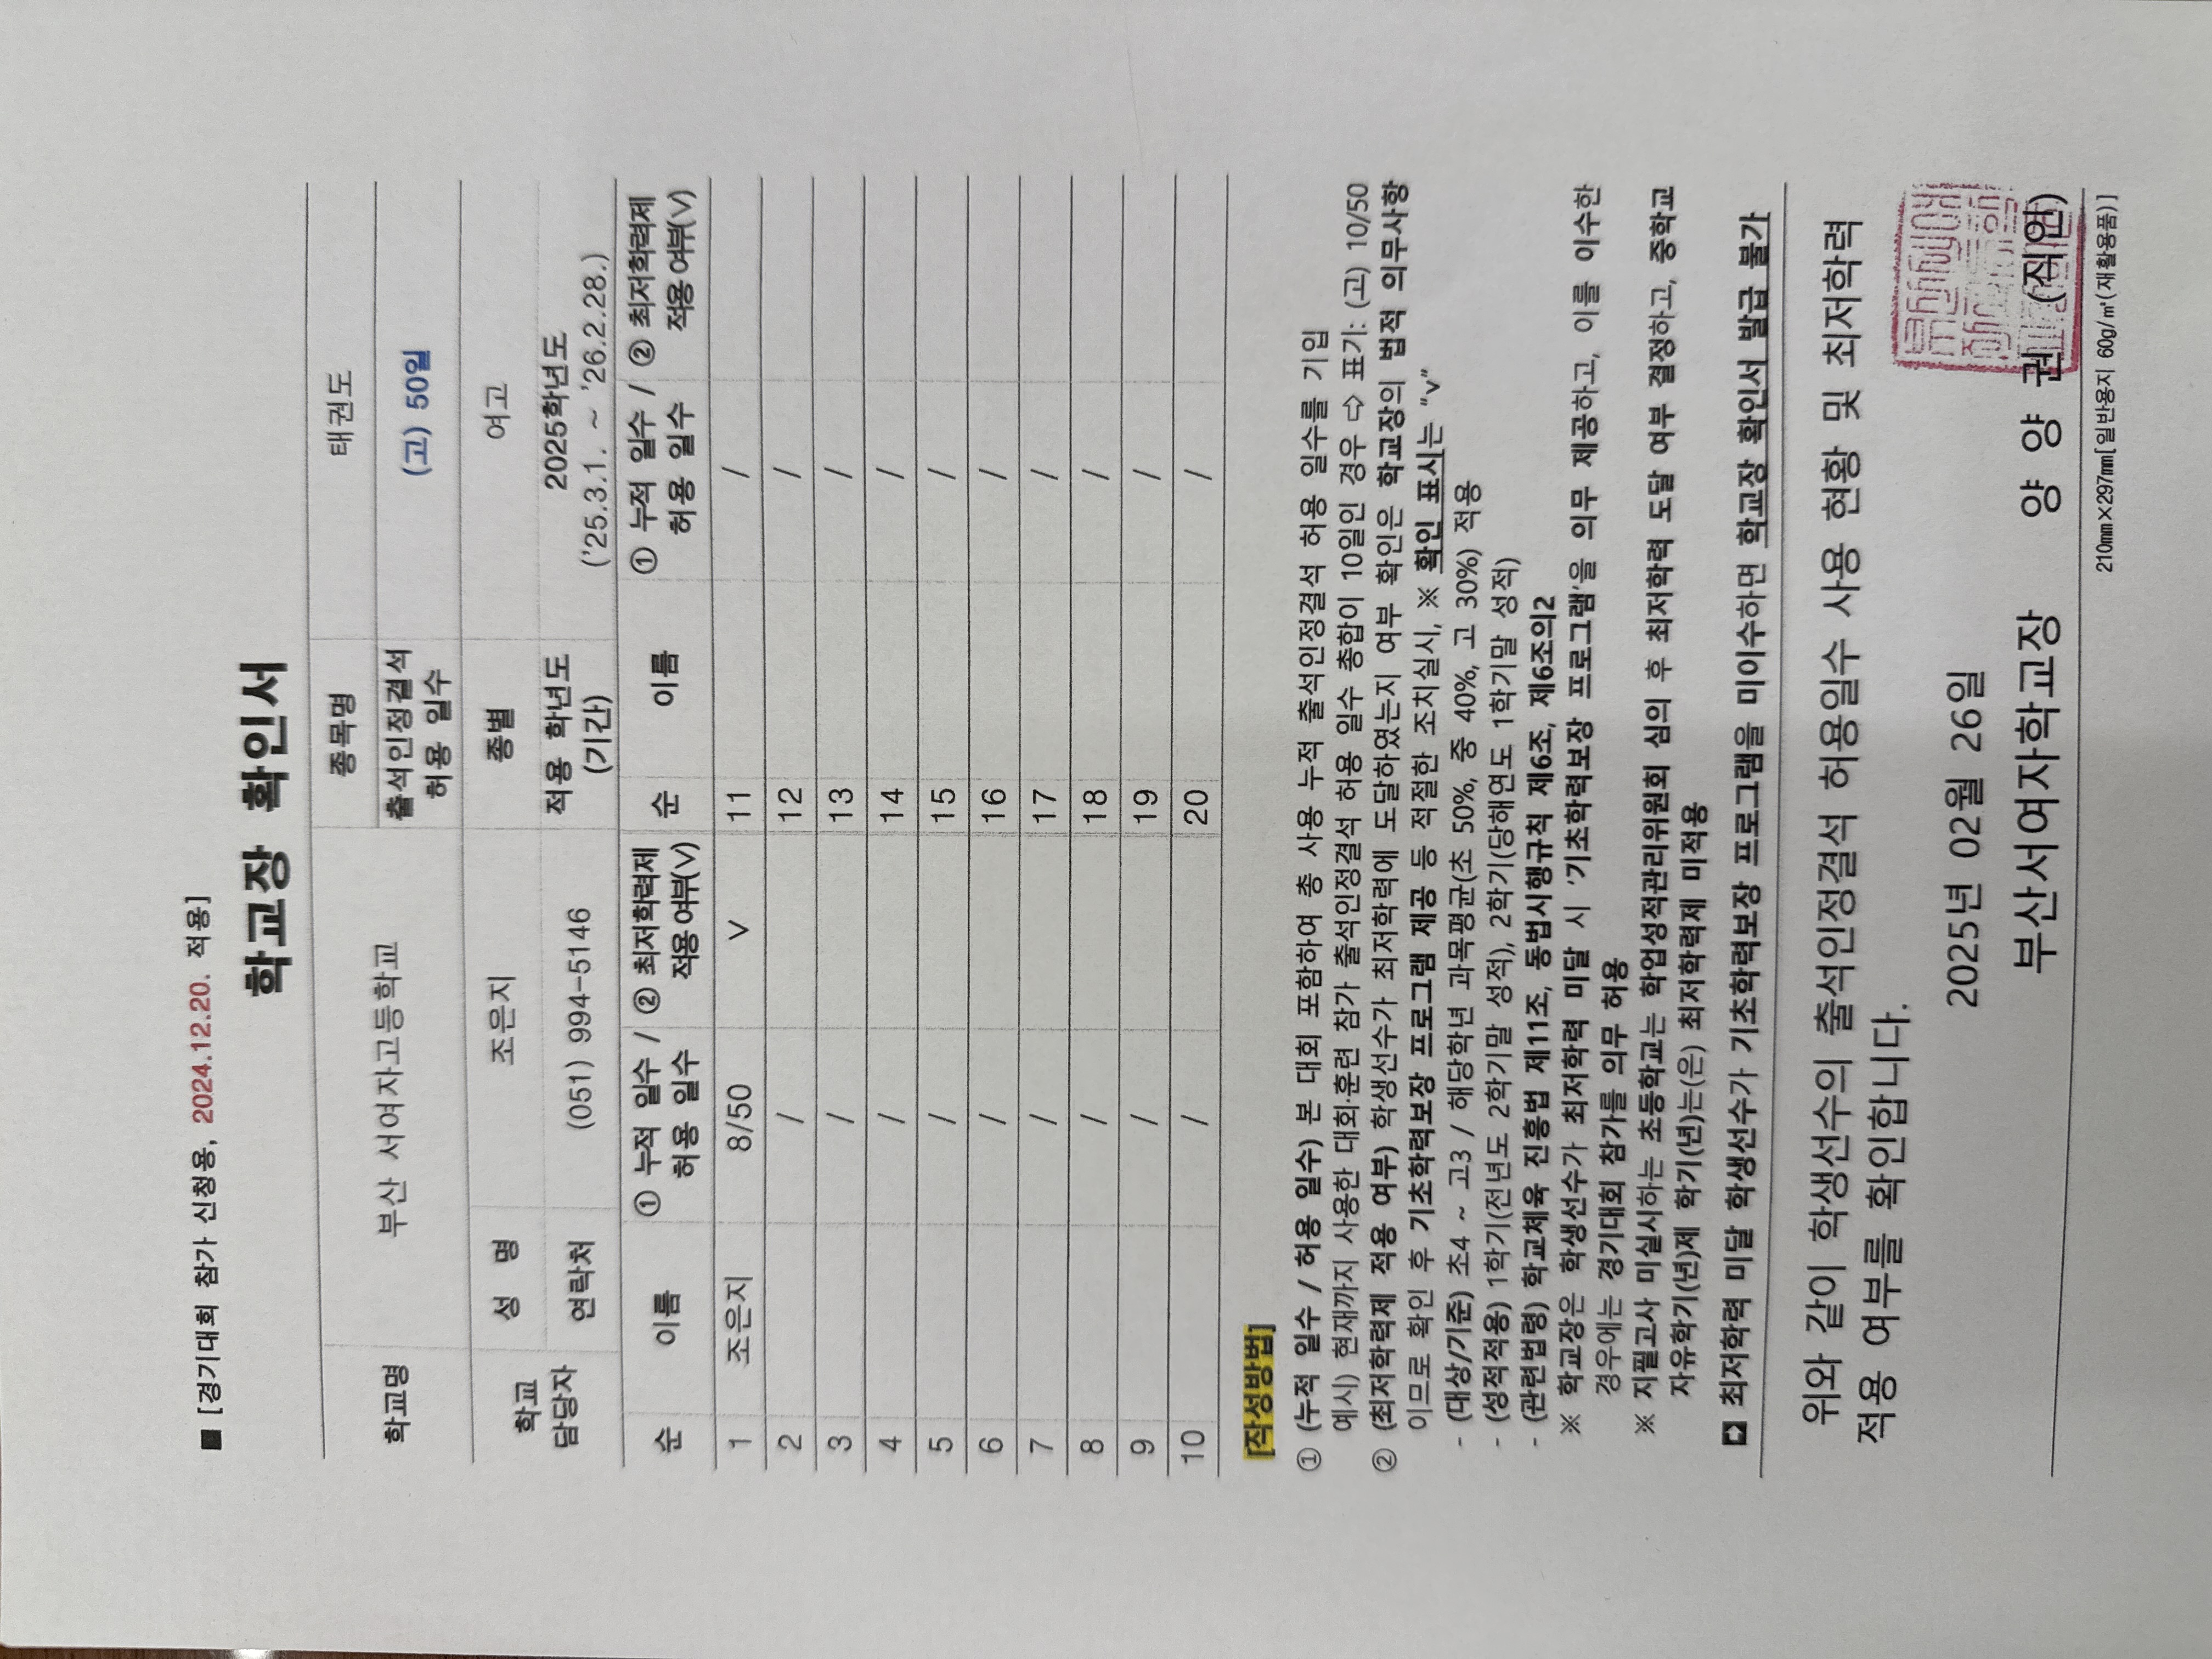 ■ [경기대회 참가 신청용, 2024.12.20. 적용]
학교장 확인서
학교명 부산 서여자고등학교 종목명 태권도
출석인정결석 허용 일수 (고) 50일
학교 담당자 성 명 조은지 종별 여고
연락처 (051) 994-5146 적용 학년도 (기간) 2025학년도 ('25.3.1. ~ '26.2.28.)
순 이름 ① 누적 일수 / 허용 일수 ② 최저학력제 적용여부(V) 순 이름 ① 누적 일수 / 허용 일수 ② 최저학력제 적용여부(V)
1 조은지 8/50 V 11 /
2 / 12 /
3 / 13 /
4 / 14 /
5 / 15 /
6 / 16 /
7 / 17 /
8 / 18 /
9 / 19 /
10 / 20 /
[작성방법]
① (누적 일수 / 허용 일수) 본 대회 포함하여 총 사용 누적 출석인정결석 허용 일수를 기입
예시) 현재까지 사용한 대회·훈련 참가 출석인정결석 허용 일수 총합이 10일인 경우 ⇨ 표기: (고) 10/50
② (최저학력제 적용 여부) 학생선수가 최저학력에 도달하였는지 여부 확인은 학교장의 법적 의무사항
이므로 확인 후 기초학력보장 프로그램 제공 등 적절한 조치실시, ※ 확인 표시는 "v"
- (대상/기준) 초4 ~ 고3 / 해당학년 과목평균(초 50%, 중 40%, 고 30%) 적용
- (성적적용) 1학기(전년도 2학기말 성적), 2학기(당해연도 1학기말 성적)
- (관련법령) 학교체육 진흥법 제11조, 동법시행규칙 제6조, 제6조의2
※ 학교장은 학생선수가 최저학력 미달 시 '기초학력보장 프로그램'을 의무 제공하고, 이를 이수한
경우에는 경기대회 참가를 의무 허용
※ 지필고사 미실시하는 초등학교는 학업성적관리위원회 심의 후 최저학력 도달 여부 결정하고, 중학교
자유학기(년)제 학기(년)는(은) 최저학력제 미적용
➡ 최저학력 미달 학생선수가 기초학력보장 프로그램을 미이수하면 학교장 확인서 발급 불가
위와 같이 학생선수의 출석인정결석 허용일수 사용 현황 및 최저학력
적용 여부를 확인합니다.
2025년 02월 26일
부산서여자학교장 양 양 권 (직인)
210㎜×297㎜[일반용지 60g/㎡(재활용품)]